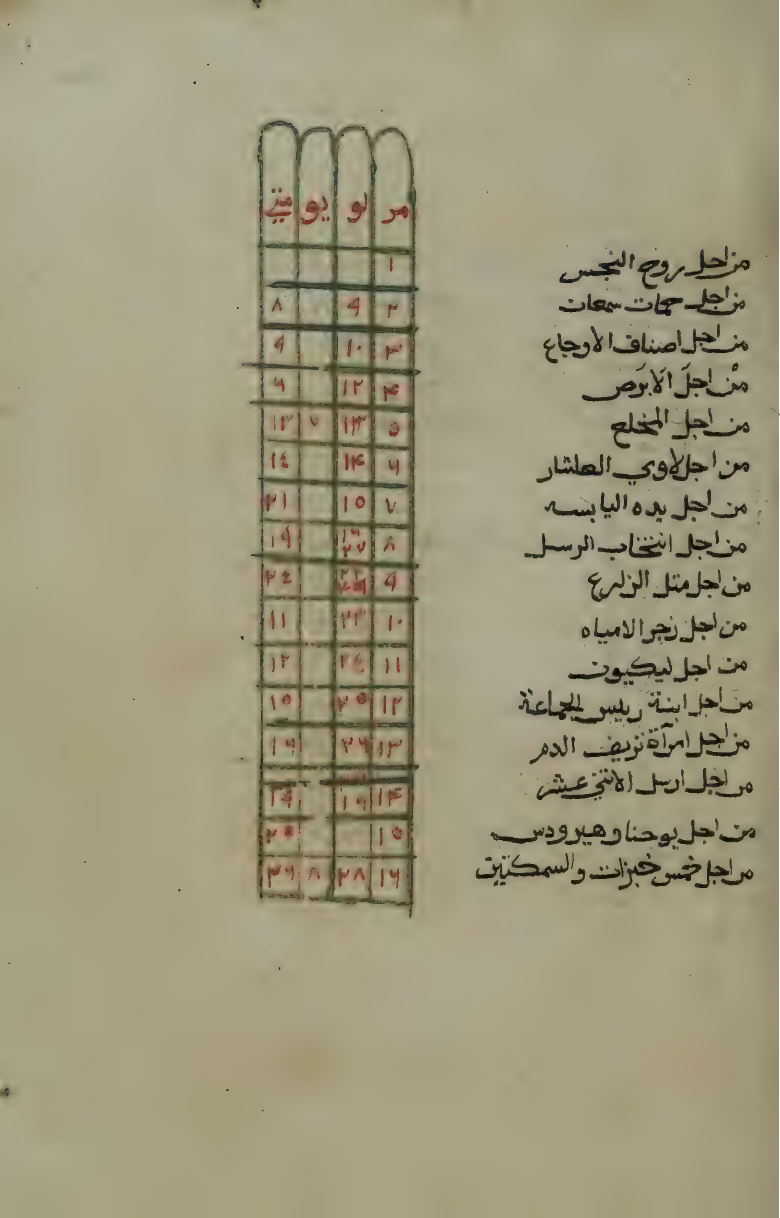 مر لو يو متي
من اجل روح النجس ١
من اجل حمات سمعان ٢ ٩ ٨
من اجل اصناف الاوجاع ٣ ١٠ ٩
من اجل الابرص ٤ ١٢ ٦
من اجل المخلع ٥ ١٣ ٧ ١٣
من اجل لاوي العشار ٦ ١٤ ١٤
من اجل يده اليابسه ٧ ١٥ ٢١
من اجل انتخاب الرسل ٨ ١٩
من اجل مثل الزارع ٩ ٢٤
من اجل زجر الامياه ١٠ ٢٣ ١١
من اجل ليكيون ١١ ٢٤ ١٢
من اجل ابنة رييس الجماعة ١٢ ٢٥ ١٥
من اجل امرآة نزيف الدم ١٣ ٢٦ ١٦
من اجل ارسل الاثني عشر ١٤ ١٩ ١٩
من اجل يوحنا وهيرودس ١٥ ٢٥
من اجل خمس خبزات والسمكتين ١٦ ٢٨ ٨ ٢٦